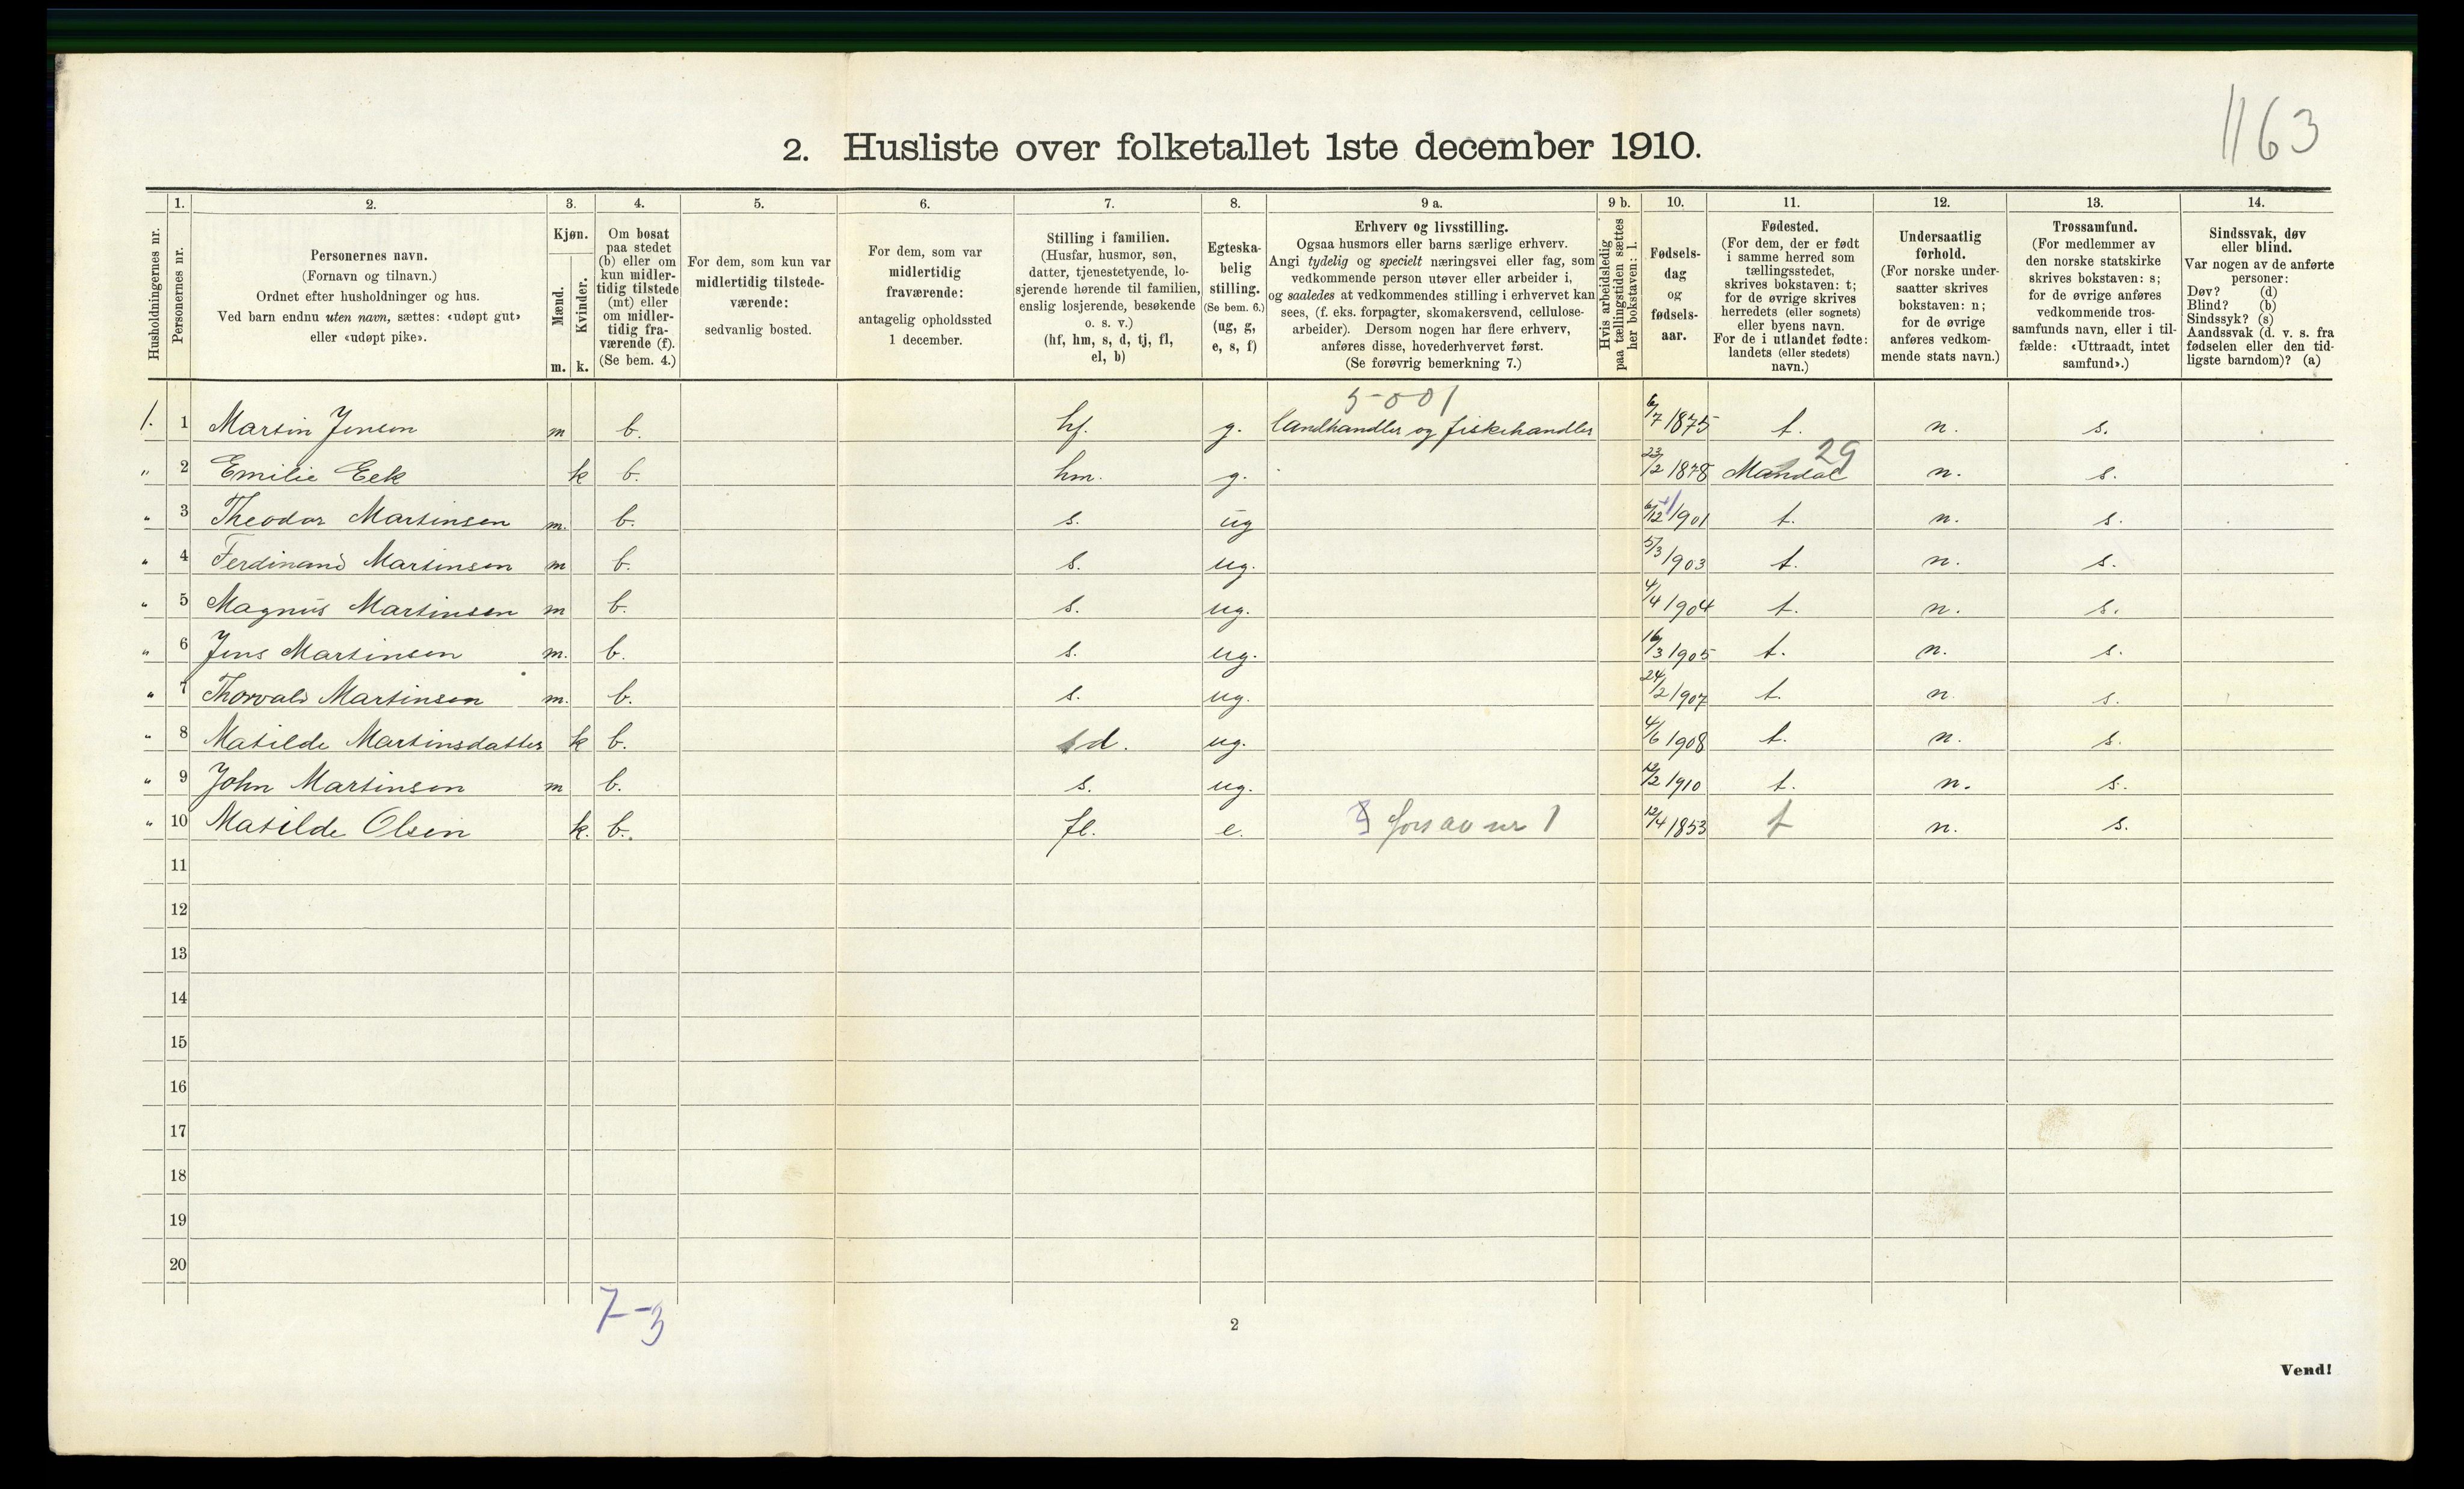 1163
2. Husliste over folketallet 1ste december 1910.
Husholdningernes nr.
1.
Personernes nr.
2.
Personernes navn.
(Fornavn og tilnavn.)
Ordnet efter husholdninger og hus.
Ved barn endnu uten navn, sættes: «udøpt gut»
eller «udøpt pike».
3.
Kjøn.
Mænd.
Kvinder.
m. k.
4.
Om bosat
paa stedet
(b) eller om
kun midler-
tidig tilstede
(mt) eller
om midler-
tidig fra-
værende (f).
(Se bem. 4.)
5.
For dem, som kun var
midlertidig tilstede-
værende:
sedvanlig bosted.
6.
For dem, som var
midlertidig
fraværende:
antagelig opholdssted
1 december.
7.
Stilling i familien.
(Husfar, husmor, søn,
datter, tjenestetyende, lo-
sjerende hørende til familien,
enslig losjerende, besøkende
o. s. v.)
(hf, hm, s, d, tj, fl,
el, b)
8.
Egteska-
belig
stilling.
(Se bem. 6.)
(ug, g,
e, s, f)
9 a.
Erhverv og livsstilling.
Ogsaa husmors eller barns særlige erhverv.
Angi tydelig og specielt næringsvei eller fag, som
vedkommende person utøver eller arbeider i,
og saaledes at vedkommendes stilling i erhvervet kan
sees, (f. eks. forpagter, skomakersvend, cellulose-
arbeider). Dersom nogen har flere erhverv,
anføres disse, hovederhvervet først.
(Se forøvrig bemerkning 7.)
9 b.
Hvis arbeidsledig
paa tællingstiden sættes
her bokstaven: l.
10.
Fødsels-
dag
og
fødsels-
aar.
11.
Fødested.
(For dem, der er født
i samme herred som
tællingsstedet,
skrives bokstaven: t;
for de øvrige skrives
herredets (eller sognets)
eller byens navn.
For de i utlandet fødte:
landets (eller stedets)
navn.)
12.
Undersaatlig
forhold.
(For norske under-
saatter skrives
bokstaven: n;
for de øvrige
anføres vedkom-
mende stats navn.)
13.
Trossamfund.
(For medlemmer av
den norske statskirke
skrives bokstaven: s;
for de øvrige anføres
vedkommende tros-
samfunds navn, eller i til-
fælde: «Uttraadt, intet
samfund».)
14.
Sindssvak, døv
eller blind.
Var nogen av de anførte
personer:
Døv? (d)
Blind? (b)
Sindssyk? (s)
Aandssvak (d. v. s. fra
fødselen eller den tid-
ligste barndom)? (a)
5-001
1. 1 Martin Jensen m b. hf. g. landhandler og fiskehandler 6/7 1875 t. n. s.
29
" 2 Emilie Eek k b. hm. g. 23/2 1878 Mandal n. s.
" 3 Theodor Martinsen m. b. s. ug 6/12 1901 t. n. s.
" 4 Ferdinand Martinsen m b. s. ug. 5/3 1903 t. n. s.
" 5 Magnus Martinsen m b. s. ug. 4/4 1904 t. n. s.
" 6 Jens Martinsen m. b. s. ug. 16/3 1905 t. n. s.
" 7 Thorvald Martinsen m. b. s. ug. 24/2 1907 t. n. s.
" 8 Matilde Martinsdatter k b. d. ug. 4/6 1908 t. n. s.
" 9 John Martinsen m b. s. ug. 12/2 1910 t. n. s.
" 10 Matilde Olsen k. b. fl. e. fors av nr 1 12/4 1853 t n. s.
11
12
13
14
15
16
17
18
19
20
7-3
2
Vend!